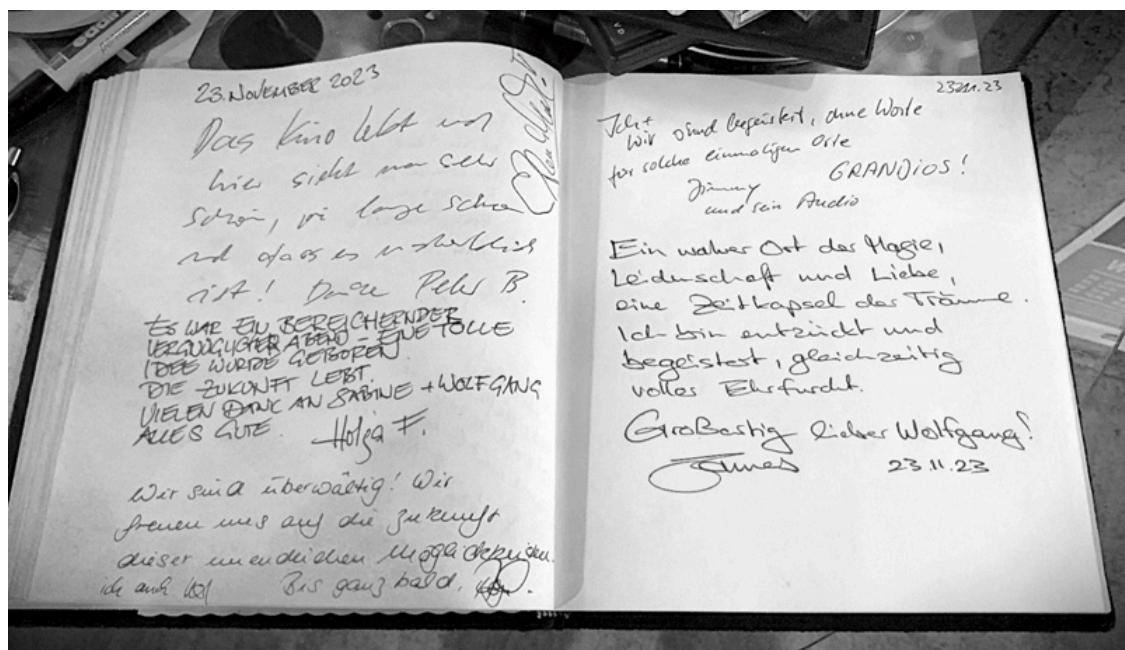 23. NOVEMBER 2023
Das Kino lebt und
hier sieht man sehr
schön, wie lange schon
und dass es unsterblich
ist! Danke Peter B.
ES WAR EIN BEREICHERNDER
VERGNÜGLICHER ABEND – EINE TOLLE
IDEE WURDE GEBOREN.
DIE ZUKUNFT LEBT.
VIELEN DANK AN SABINE + WOLFGANG
ALLES GUTE. Holga F.
Wir sind überwältig! Wir
freuen uns auf die Zukunft
dieser unendlichen Möglichkeiten.
ich auch Bis ganz bald,
23.11.23
Ich +
Wir sind begeistert, ohne Worte
für solche einmaligen Orte
GRANDIOS!
Jimmy
und sein Audio
Ein wahrer Ort der Magie,
Leidenschaft und Liebe,
eine Zeitkapsel der Träume.
Ich bin entzückt und
begeistert, gleichzeitig
voller Ehrfurcht.
Großartig lieber Wolfgang!
23.11.23